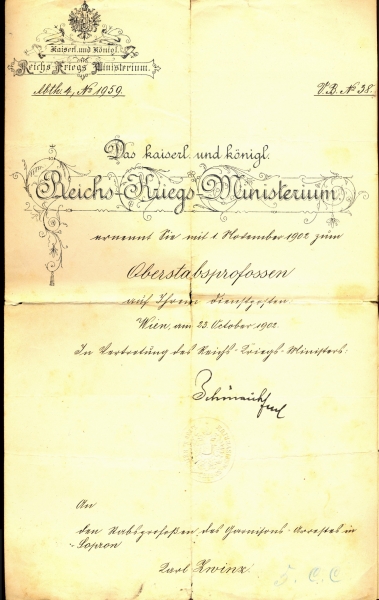 Kaiserl. und Königl.
Reichs Kriegs Ministerium.
Abth. 4, № 1959.
V.B. № 38.
Das kaiserl. und königl.
Reichs-Kriegs-Ministerium
ernennt Sie mit 1. November 1902 zum
Oberstabsprofossen
auf Ihrem Dienstposten
Wien, am 23. October 1902.
In Vertretung des Reichs-Kriegs-Ministers:
An
den Stabsprofoßen des Garnisons-Arrestes in
Sopron
Karl Zwinz